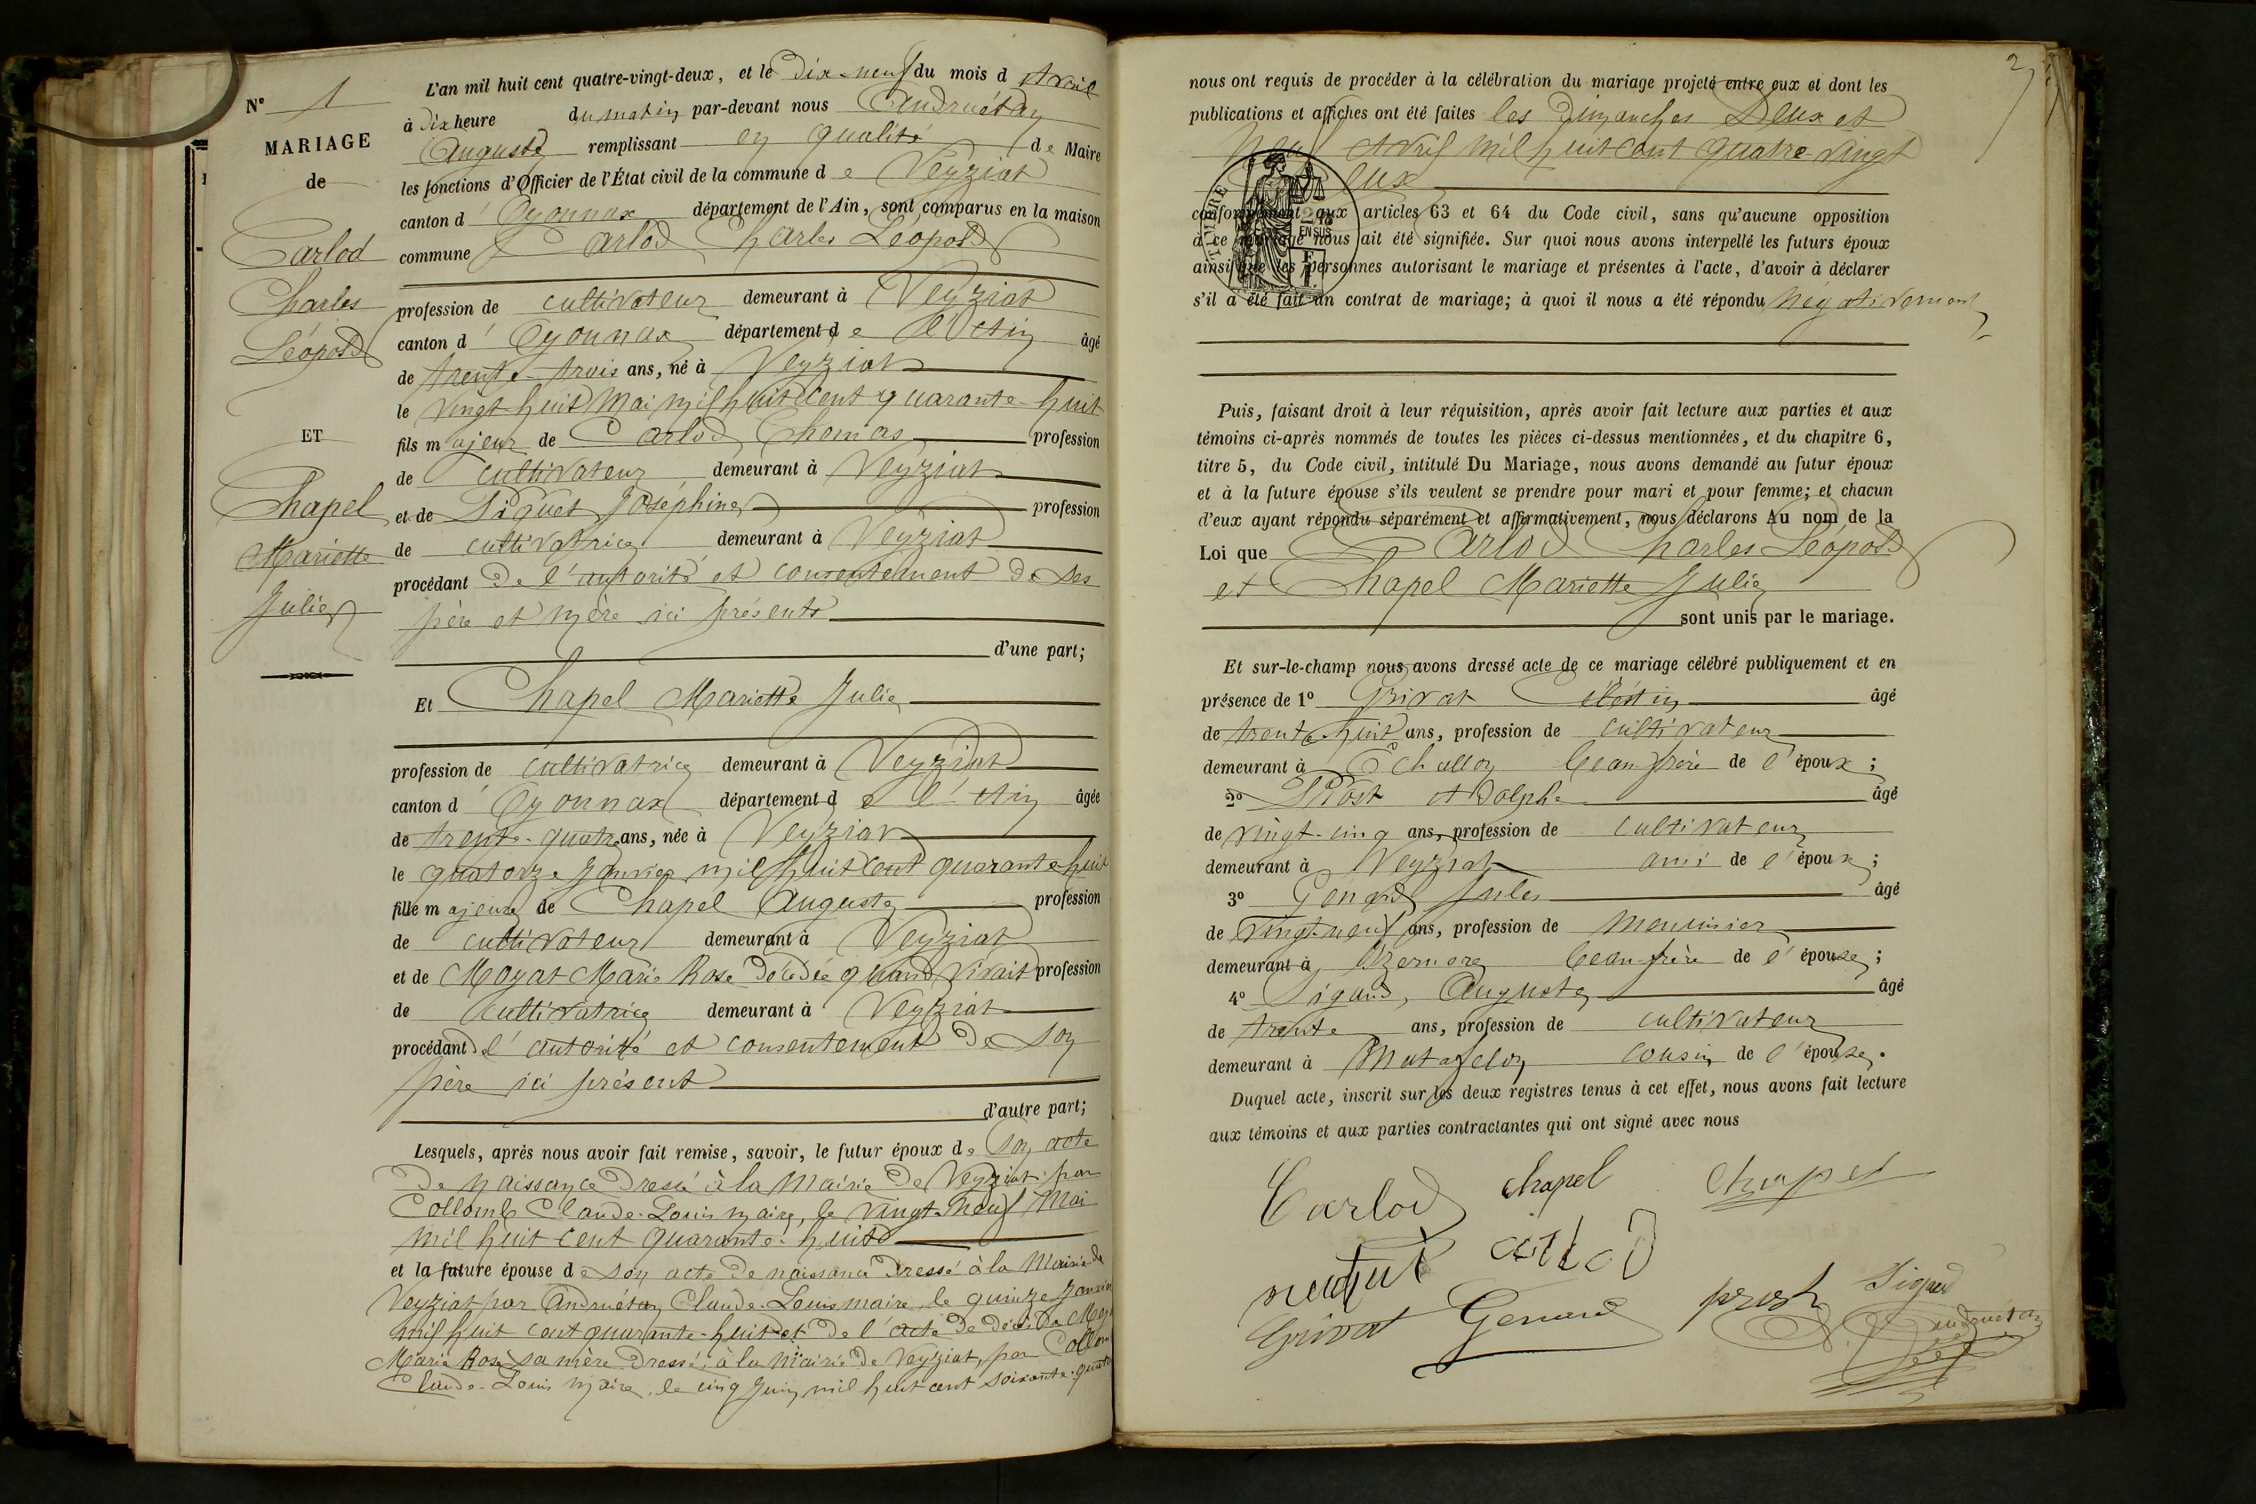 N° 1
MARIAGE
de
Carlod
Charles
Léopold
ET
Chapel
Mariette
Julie
L'an mil huit cent quatre-vingt-deux, et le dix-neuf du mois d Avril
à dix heure du matin par-devant nous Andruétan
Auguste remplissant en qualité de Maire
les fonctions d'Officier de l'État civil de la commune de Veyziat
canton d'Oyonnax département de l'Ain, sont comparus en la maison
commune Carlod Charles Léopold
profession de cultivateur demeurant à Veyziat
canton d'Oyonnax département de l'Ain âgé
de trente-trois ans, né à Veyziat
le vingt huit Mai mil huit cent quarante-huit
fils majeur de Carlod Thomas profession
de cultivateur demeurant à Veyziat
et de Piquet Joséphine profession
de cultivatrice demeurant à Veyziat
procédant de l'autorité et consentement de ses
père et mère ici présents
d'une part;
Et Chapel Mariette Julie
profession de cultivatrice demeurant à Veyziat
canton d'Oyonnax département de l'Ain âgée
de trente-quatre ans, née à Veyziat
le quatorze Janvier mil huit cent quarante huit
fille majeure de Chapel Auguste profession
de cultivateur demeurant à Veyziat
et de Moyat Marie Rose décédée quand vivait profession
de cultivatrice demeurant à Veyziat
procédant de l'autorité et consentement de son
père ici présent
d'autre part;
Lesquels, après nous avoir fait remise, savoir, le futur époux de son acte
de naissance dressé à la Mairie de Veyziat par
Collomb Claude-Louis maire, le vingt-neuf Mai
mil huit cent quarante-huit
et la future épouse de son acte de naissance dressé à la Mairie de
Veyziat par Andruétan Claude-Louis maire, le quinze Janvier
mil huit cent quarante-huit et de l'acte de décès de
Marie Rose sa mère dressé à la mairie de Veyziat, par
Claude-Louis maire, le cinq Juin mil huit cent soixante-quatre
2
nous ont requis de procéder à la célébration du mariage projeté entre eux et dont les
publications et affiches ont été faites les Dimanches Deux et
Neuf Avril mil huit cent quatre-vingt
Deux
TIMBRE
2
EN SUS
conformément aux articles 63 et 64 du Code civil, sans qu'aucune opposition
à ce mariage nous ait été signifiée. Sur quoi nous avons interpellé les futurs époux
ainsi que les personnes autorisant le mariage et présentes à l'acte, d'avoir à déclarer
s'il a été fait un contrat de mariage; à quoi il nous a été répondu négativement
Puis, faisant droit à leur réquisition, après avoir fait lecture aux parties et aux
témoins ci-après nommés de toutes les pièces ci-dessus mentionnées, et du chapitre 6,
titre 5, du Code civil, intitulé Du Mariage, nous avons demandé au futur époux
et à la future épouse s'ils veulent se prendre pour mari et pour femme; et chacun
d'eux ayant répondu séparément et affirmativement, nous déclarons Au nom de la
Loi que Carlod Charles Léopold
et Chapel Mariette Julie
sont unis par le mariage.
Et sur-le-champ nous avons dressé acte de ce mariage célébré publiquement et en
présence de 1° Grivat Célestin âgé
de trente-huit ans, profession de cultivateur
demeurant à Echallon beau frère de l'époux;
2° Prost Adolphe âgé
de vingt-cinq ans, profession de cultivateur
demeurant à Veyziat ami de l'époux;
3° Génard Jules âgé
de vingt-neuf ans, profession de menuisier
demeurant à Izernore beau frère de l'épouse;
4° Sigaud, Auguste âgé
de trente ans, profession de cultivateur
demeurant à Matafelon cousin de l'épouse.
Duquel acte, inscrit sur les deux registres tenus à cet effet, nous avons fait lecture
aux témoins et aux parties contractantes qui ont signé avec nous
Carlod chapel Chapel
Carlod
Grivat Genard prost Sigaud
Andruétan